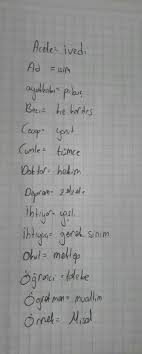 Acele = ivedi
Ad = isim
ayakkabı = pabuç
Bacı = kız kardeş
Cevap = yanıt
Cümle = tümce
Doktor = hekim
Deprem = zelzele
İhtiyar = yaşlı
İhtiyaç = gereksinim
Okul = mektep
Öğrenci = talebe
Öğretmen = muallim
Örnek = Misal